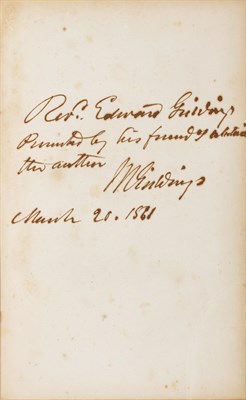 Revd. Edward Giddings
Presented by his friend &
the author
Giddings
March 20. 1861